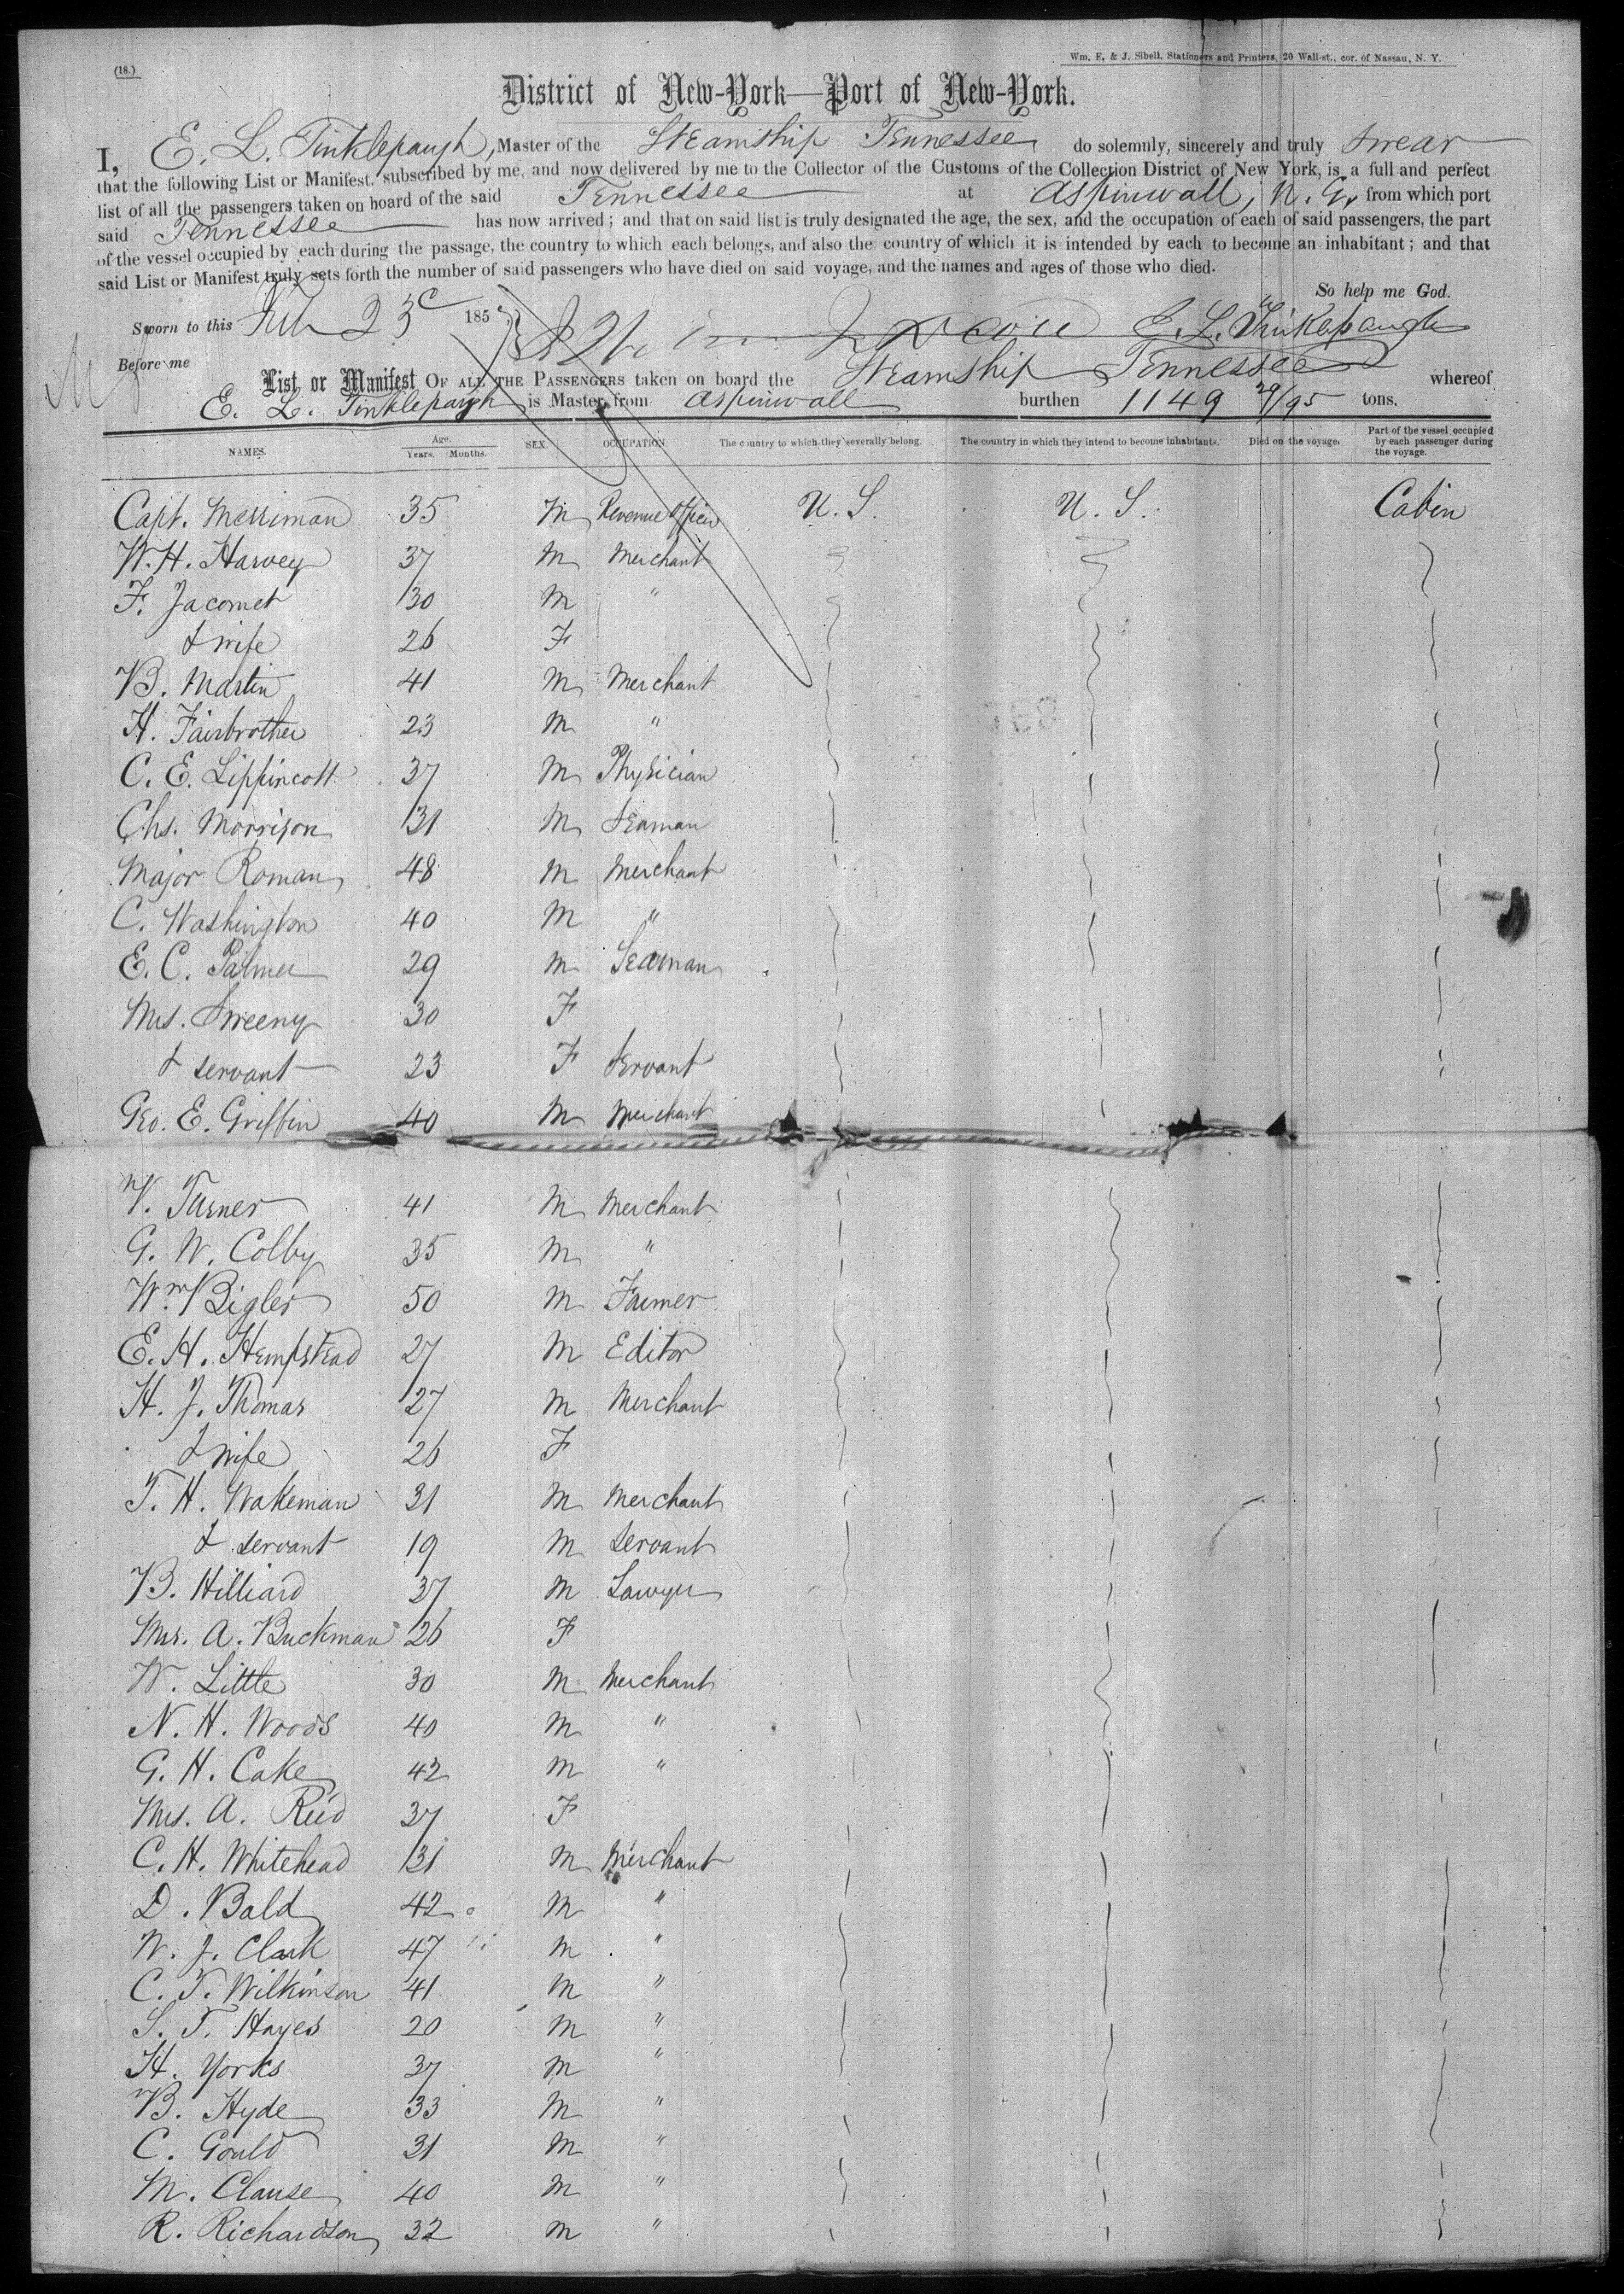 (18.)
Wm. E. & J. Sibell, Stationers and Printers, 20 Wall-st., cor. of Nassau, N. Y.
District of New-York—Port of New-York.
I, E. L. Tinklepaugh, Master of the Steamship Tennessee do solemnly, sincerely and truly swear
that the following List or Manifest, subscribed by me, and now delivered by me to the Collector of the Customs of the Collection District of New York, is a full and perfect
list of all the passengers taken on board of the said Tennessee at Aspinwall, N. G., from which port
said Tennessee has now arrived; and that on said list is truly designated the age, the sex, and the occupation of each of said passengers, the part
of the vessel occupied by each during the passage, the country to which each belongs, and also the country of which it is intended by each to become an inhabitant; and that
said List or Manifest truly sets forth the number of said passengers who have died on said voyage, and the names and ages of those who died.
So help me God.
Sworn to this 23 185 E. L. Tinklepaugh
Before me
List or Manifest OF ALL THE PASSENGERS taken on board the Steamship Tennessee whereof
E. L. Tinklepaugh is Master, from Aspinwall burthen 1149 29/95 tons.
NAMES. Age. Years. Months. SEX. OCCUPATION. The country to which they severally belong. The country in which they intend to become inhabitants. Died on the voyage. Part of the vessel occupied by each passenger during the voyage.
Capt. Merriman 35 M Revenue Officer U. S. U. S. Cabin
W. H. Harvey 37 M Merchant
F. Jacomet 30 M "
& wife 26 F
B. Martin 41 M Merchant
H. Fairbrother 23 M "
C. E. Lippincott 37 M Physician
Chs. Morrison 31 M Seaman
Major Roman 48 M Merchant
C. Washington 40 M "
E. C. Palmer 29 M Seaman
Mrs. Sweeny 30 F
& servant 23 F Servant
Geo. E. Griffin 40 M Merchant
V. Turner 41 M Merchant
G. W. Colby 35 M "
Wm. Bigler 50 M Farmer
E. H. Hempstead 27 M Editor
H. J. Thomas 27 M Merchant
& wife 26 F
T. H. Wakeman 31 M Merchant
& servant 19 M Servant
B. Hilliard 37 M Lawyer
Mrs. A. Buckman 26 F
W. Little 30 M Merchant
N. H. Woods 40 M "
G. H. Cake 42 M "
Mrs. A. Reed 37 F
C. H. Whitehead 31 M Merchant
D. Bald 42 M "
W. J. Clark 47 M "
C. T. Wilkinson 41 M "
S. T. Hayes 20 M "
H. Yorks 37 M "
B. Hyde 33 M "
C. Gould 31 M "
M. Clause 40 M "
R. Richardson 32 M "